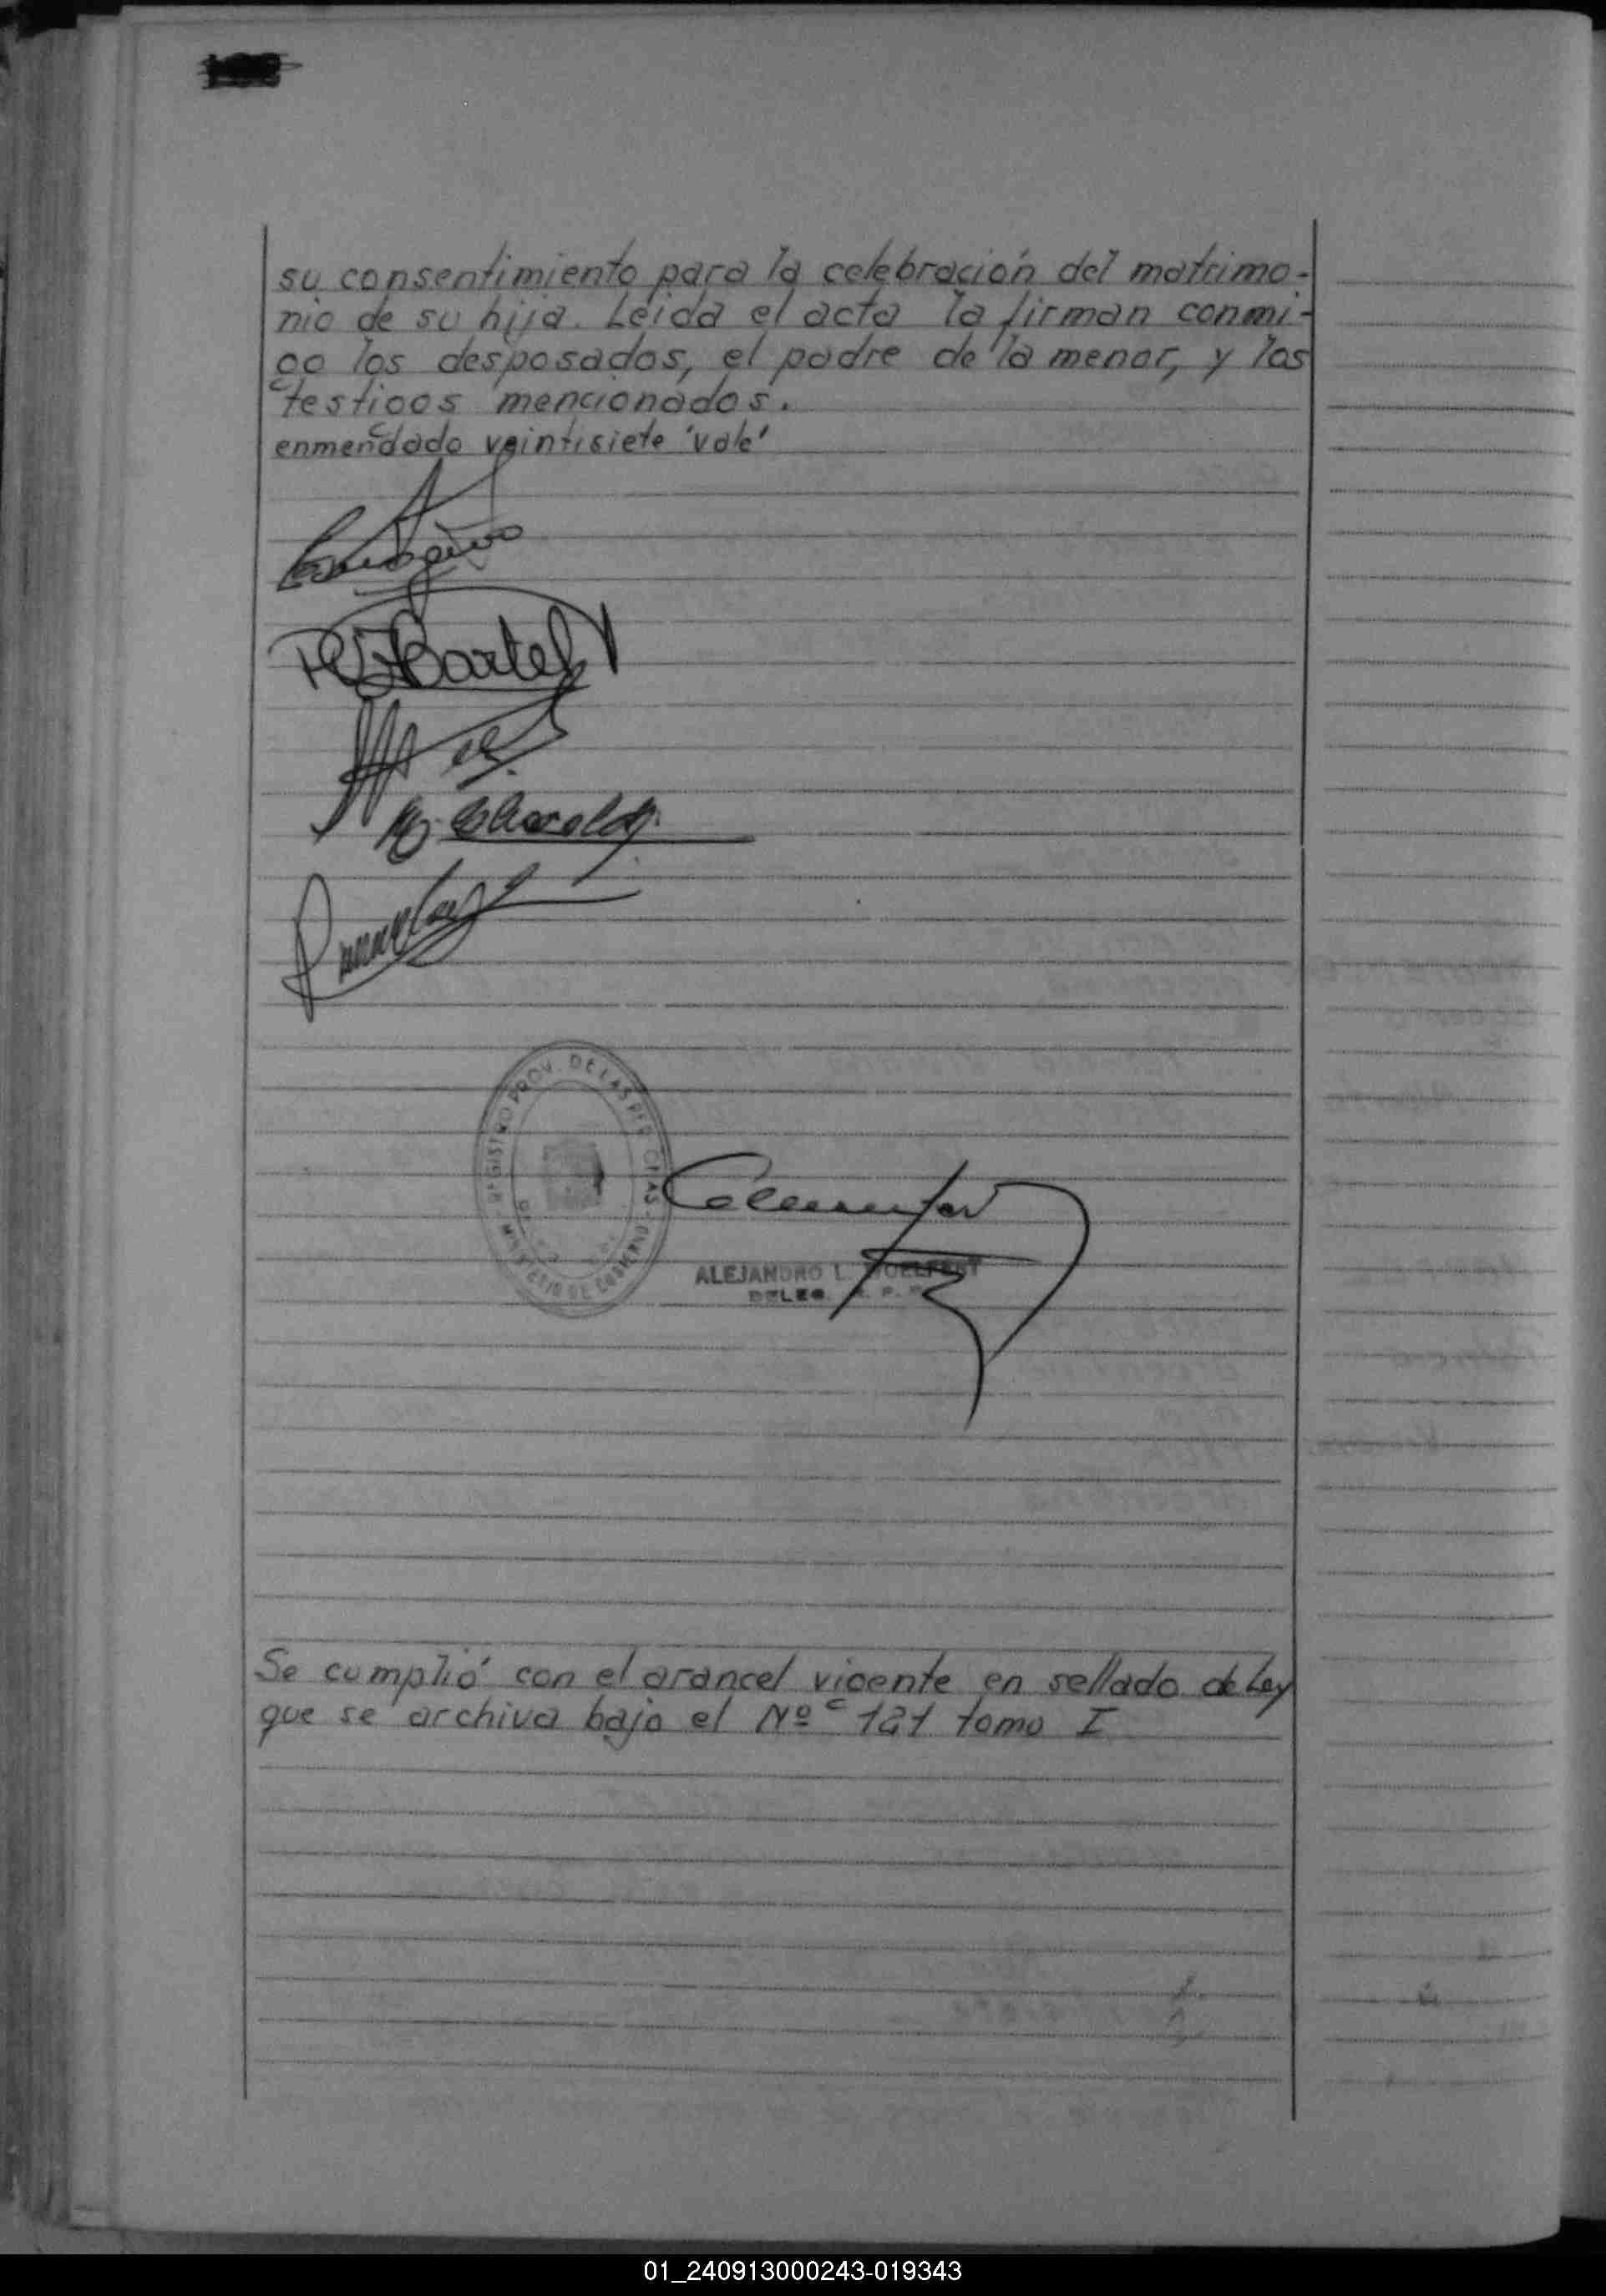 su consentimiento para la celebración del matrimo-
nio de su hija. Leida el acta la firman conmi-
go los desposados, el padre de la menor, y los
testigos mencionados.
enmendado veintisiete 'vale'
Bartel
REGISTRO PROV. DE LAS PERSONAS - MINISTERIO DE GOBIERNO
ALEJANDRO L. WOELFERT
DELEG. R. P. P.
Se cumplió con el arancel vigente en sellado de Ley
que se archiva bajo el Nº 121 tomo I
01_240913000243-019343